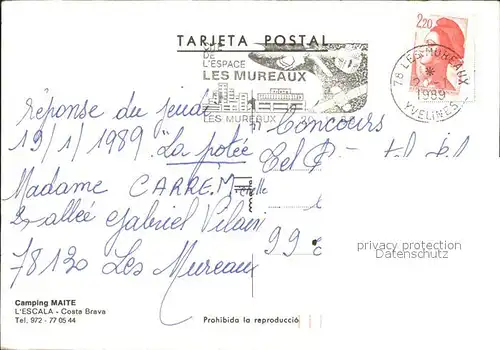 TARJETA POSTAL
2,20
DE
L'ESPACE
LES MUREAUX
LES MUREAUX
78 LES MUREAUX
1989
YVELINES
réponse du jeudi
19/1/1989 La potée
Madame CARRE.M
2, allée Gabriel
78130 Les Mureaux
Concours
Tel
99
privacy protection
Datenschutz
Camping MAITE
L'ESCALA - Costa Brava
Tel. 972 - 77 05 44
Prohibida la reproducció